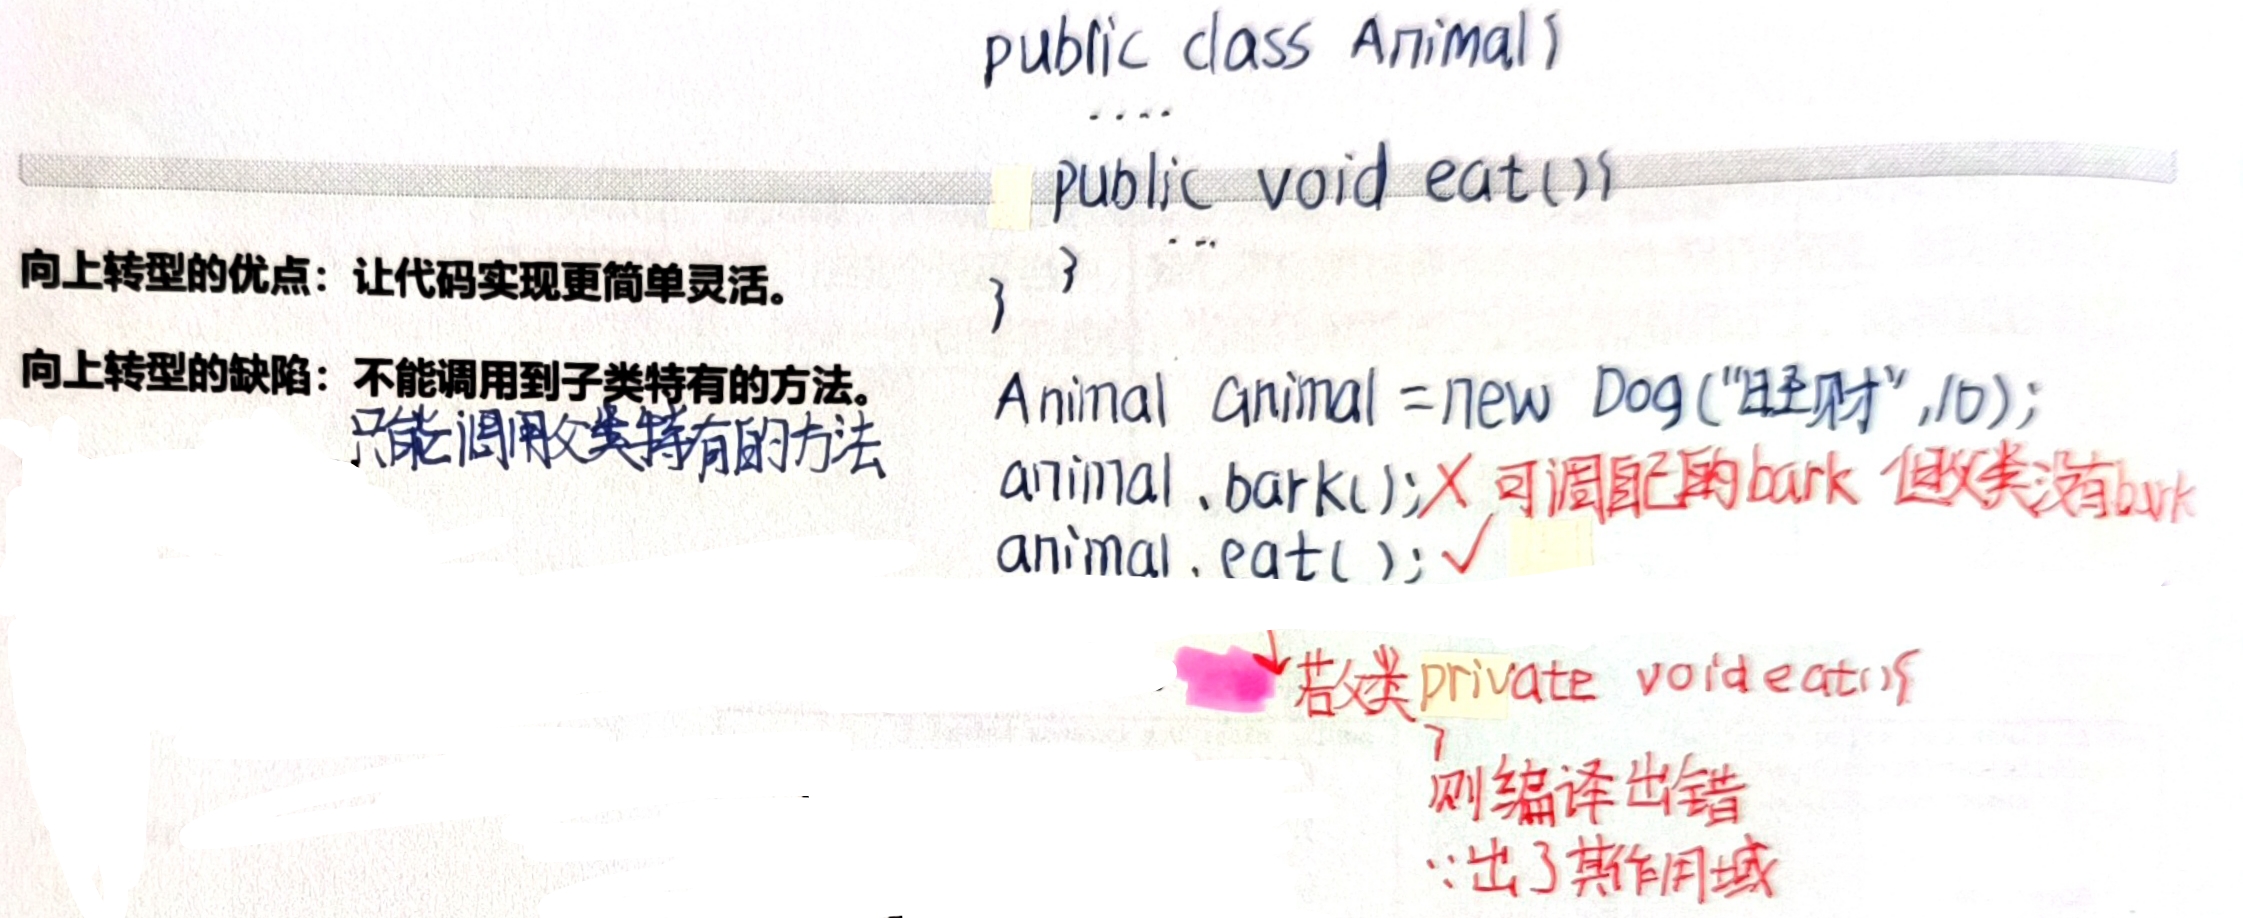 public class Animal{
....
public void eat(){
...
}
}
向上转型的优点：让代码实现更简单灵活。
向上转型的缺陷：不能调用到子类特有的方法。
只能调用父类特有的方法
Animal animal = new Dog("旺财",10);
animal.bark();X 可调自己的bark 但父类没有bark
animal.eat();✓
若父类private void eat(){
}
则编译出错
∵出了其作用域